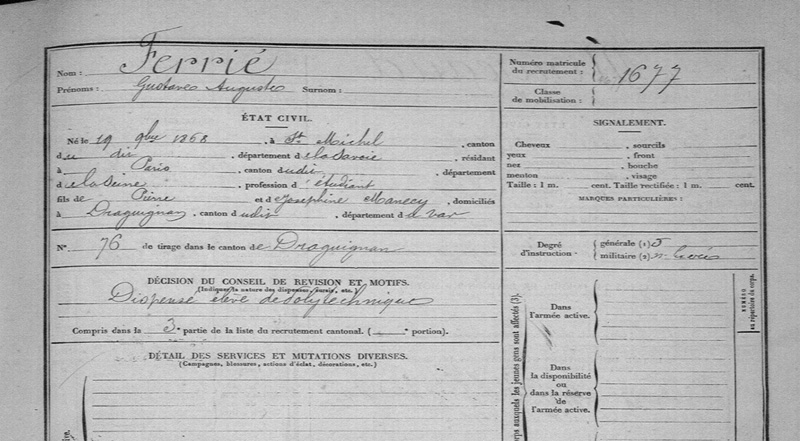 Ferrié
Nom :
Prénoms : Gustave Auguste Surnom :
Numéro matricule du recrutement : 1677
Classe de mobilisation :
ÉTAT CIVIL.
Né le 19 9bre 1868, à St Michel, canton
d u dit, département d e la Savoie, résidant
à Paris, canton dudit, département
d e la Seine, profession d'étudiant
fils de Pierre et d e Josephine Manecy, domiciliés
à Draguignan, canton dudit, département d u Var
N° 76 de tirage dans le canton de Draguignan
SIGNALEMENT.
Cheveux, sourcils
yeux, front
nez, bouche
menton, visage
Taille : 1 m. cent. Taille rectifiée : 1 m. cent.
MARQUES PARTICULIÈRES :
Degré d'instruction : générale (1) 5
militaire (2)
DÉCISION DU CONSEIL DE REVISION ET MOTIFS.
(Indiquer la nature des dispenses, sursis, etc.)
Dispensé élève de Polytechnique
Compris dans la 3e partie de la liste du recrutement cantonal. ( portion).
DÉTAIL DES SERVICES ET MUTATIONS DIVERSES.
(Campagnes, blessures, actions d'éclat, décorations, etc.)
corps auxquels les jeunes gens sont affectés (3).
Dans l'armée active.
Dans la disponibilité ou dans la réserve de l'armée active.
NUMÉRO
au répertoire du corps.